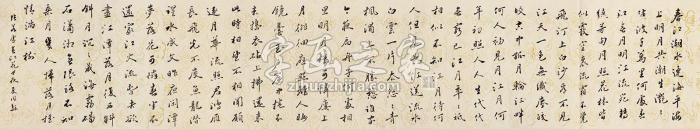 春江潮水連海平海
上明月共潮生灧灧
隨波千萬里何處春
江無月明江流宛轉
繞芳甸月照花林皆
似霰空裏流霜不覺
飛汀上白沙看不見
江天一色無纖塵皎
皎空中孤月輪江畔
何人初見月江月何
年初照人人生代代
無窮已江月年年祇
相似不知江月待何
人但見長江送流水
白雲一片去悠悠青
楓浦上不勝愁誰家
今夜扁舟子何處相
思明月樓可憐樓上
月徘徊應照離人妝
鏡臺玉戶簾中卷不
去擣衣砧上拂還來
此時相望不相聞願
逐月華流照君鴻雁
長飛光不度魚龍潛
躍水成文昨夜閑潭
夢落花可憐春半不
還家江水流春去欲
盡江潭落月復西斜
斜月沉沉藏海霧碣
石瀟湘無限路不知
乘月幾人歸落月搖
情滿江樹